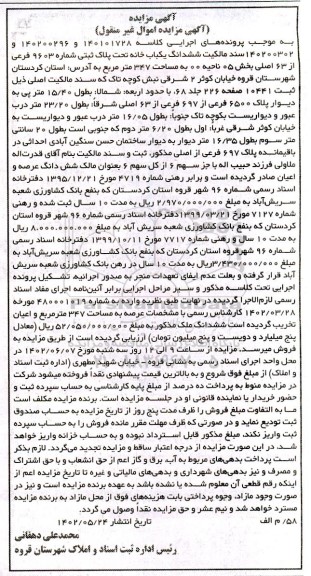 آگهی مزایده
(آگهی مزایده اموال غیر منقول)
به موجب پرونده‌های اجرایی کلاسه ۱۴۰۱۰۱۷۲۸ و ۱۴۰۲۰۰۲۹۶ و
۱۴۰۲۰۰۳۰۲ سند مالکیت ششدانگ یکباب خانه تحت پلاک ثبتی شماره ۹۶۰۳ فرعی
از ۶۳ اصلی بخش ۰۵ ناحیه ۰۰ به مساحت ۳۴۷ متر مربع به آدرس: استان کردستان
شهرستان قروه خیابان کوثر ۲ شرقی نبش کوچه تاک که سند مالکیت اصلی ذیل
ثبت ۱۰۴۴۱ صفحه ۲۲۶ جلد ۶۸، با حدود اربعه: شمالاً: بطول ۱۵/۴۰ متر پی به
دیوار پلاک ۶۵۰۰ فرعی از ۶۹۷ فرعی از ۶۳ اصلی شرقاً: بطول ۲۳/۲۰ متر درب
عبور و دیواریست بکوچه تاک جنوباً: بطول ۱۶/۰۵ متر درب عبور و دیواریست به
خیابان کوثر شرقی غرباً: اول بطول ۶/۲۰ متر دوم که جنوبی است بطول ۲۰ سانتی
متر سوم بطول ۱۶/۳۵ متر دیوار به دیوار ساختمان حسن سنگین آبادی احداثی در
باقیمانده پلاک ۶۹۷ فرعی از اصلی مذکور، ثبت و سند مالکیت بنام آقای قدرت‌اله
ملاولی فرزند حبیب اله با جز سهم ۶ از کل سهم ۶ بعنوان مالک شش دانگ عرصه و
اعیان صادر گردیده است و برابر رهنی شماره ۴۷۱۹ مورخ ۱۳۹۵/۱۲/۲۱ دفترخانه
اسناد رسمی شماره ۹۶ شهر قروه استان کردستان که بنفع بانک کشاورزی شعبه
سریش‌آباد به مبلغ ۲/۹۷۰/۰۰۰/۰۰۰ ریال به مدت ۱۰ سال ثبت شده و رهنی
شماره ۷۱۲۷ مورخ ۱۳۹۹/۰۳/۲۱ دفترخانه اسناد رسمی شماره ۹۶ شهر قروه استان
کردستان که بنفع بانک کشاورزی شعبه سریش آباد به مبلغ ۸.۰۰۰.۰۰۰.۰۰۰ ریال
به مدت ۱۰ سال و رهنی شماره ۷۷۱۷ مورخ ۱۳۹۹/۱۰/۱۱ دفترخانه اسناد رسمی
شماره ۹۶ شهر قروه استان کردستان که بنفع بانک کشاورزی شعبه سریش‌آباد به
مبلغ ۳/۴۳۰/۰۰۰/۰۰۰ ریال به مدت ۱۰ سال در رهن بانک کشاورزی شعبه سریش
آباد قرار گرفته و بعلت عدم ایفای تعهدات منجر به صدور اجرائیه، تشکیل پرونده
اجرایی تحت کلاسه مذکور و سیر مراحل اجرایی برابر آئین‌نامه اجرای مفاد اسناد
رسمی لازم‌الاجرا گردیده در نهایت طبق نظریه وارده به شماره ۴۸۰۰۰۱۰۱۹ مورخه
۱۴۰۲/۰۳/۲۸ کارشناس رسمی با مشخصات عرصه به مساحت ۳۴۷ مترمربع و اعیان
تخریب گردیده است ششدانگ ملک مذکور به مبلغ ۵۲/۰۵۰/۰۰۰/۰۰۰ ریال (معادل
پنج میلیارد و دویست و پنج میلیون تومان) ارزیابی گردیده است از طریق مزایده به
فروش میرسد. مزایده از ساعت ۹ الی ۱۲ روز سه شنبه مورخ ۱۴۰۲/۰۶/۰۷ در
محل واحد اجرای اسناد رسمی به نشانی قروه- خیابان شهید مطهری (اداره ثبت اسناد
و املاک) از مبلغ فوق شروع و به بالاترین قیمت پیشنهادی نقداً فروخته میشود شرکت
در مزایده منوط به پرداخت ده درصد از مبلغ پایه کارشناسی به حساب سپرده ثبت و
حضور خریدار یا نماینده قانونی او در جلسه مزایده است. برنده مزایده مکلف است
ما به التفاوت مبلغ فروش را ظرف مدت پنج روز از تاریخ مزایده به حساب صندوق
ثبت تودیع نماید و در صورتی که ظرف مهلت مقرر مانده فروش را به حساب سپرده
ثبت واریز نکند، مبلغ مذکور قابل استرداد نبوده و به حساب خزانه واریز خواهد
شد، در این صورت مزایده از درجه اعتبار ساقط و مزایده تجدید می‌گردد. لازم بذکر
است پرداخت بدهی‌های مربوط به آب، برق و گاز اعم از حق انشعاب و یا حق اشتراک
و مصرف و نیز بدهی‌های شهرداری و بدهی‌های مالیاتی و غیره تا تاریخ مزایده اعم از
اینکه رقم قطعی آن معلوم شده یا نشده باشد به عهده برنده مزایده است و نیز در
صورت وجود مازاد، وجوه پرداختی بابت هزینه‌های فوق از محل مازاد به برنده مزایده
مسترد خواهد شد و نیم عشر و حق مزایده نقداً وصول می گردد.
۵۸/ م الف
تاریخ انتشار ۱۴۰۲/۰۵/۲۴
محمدعلی دهقانی
رئیس اداره ثبت اسناد و املاک شهرستان قروه